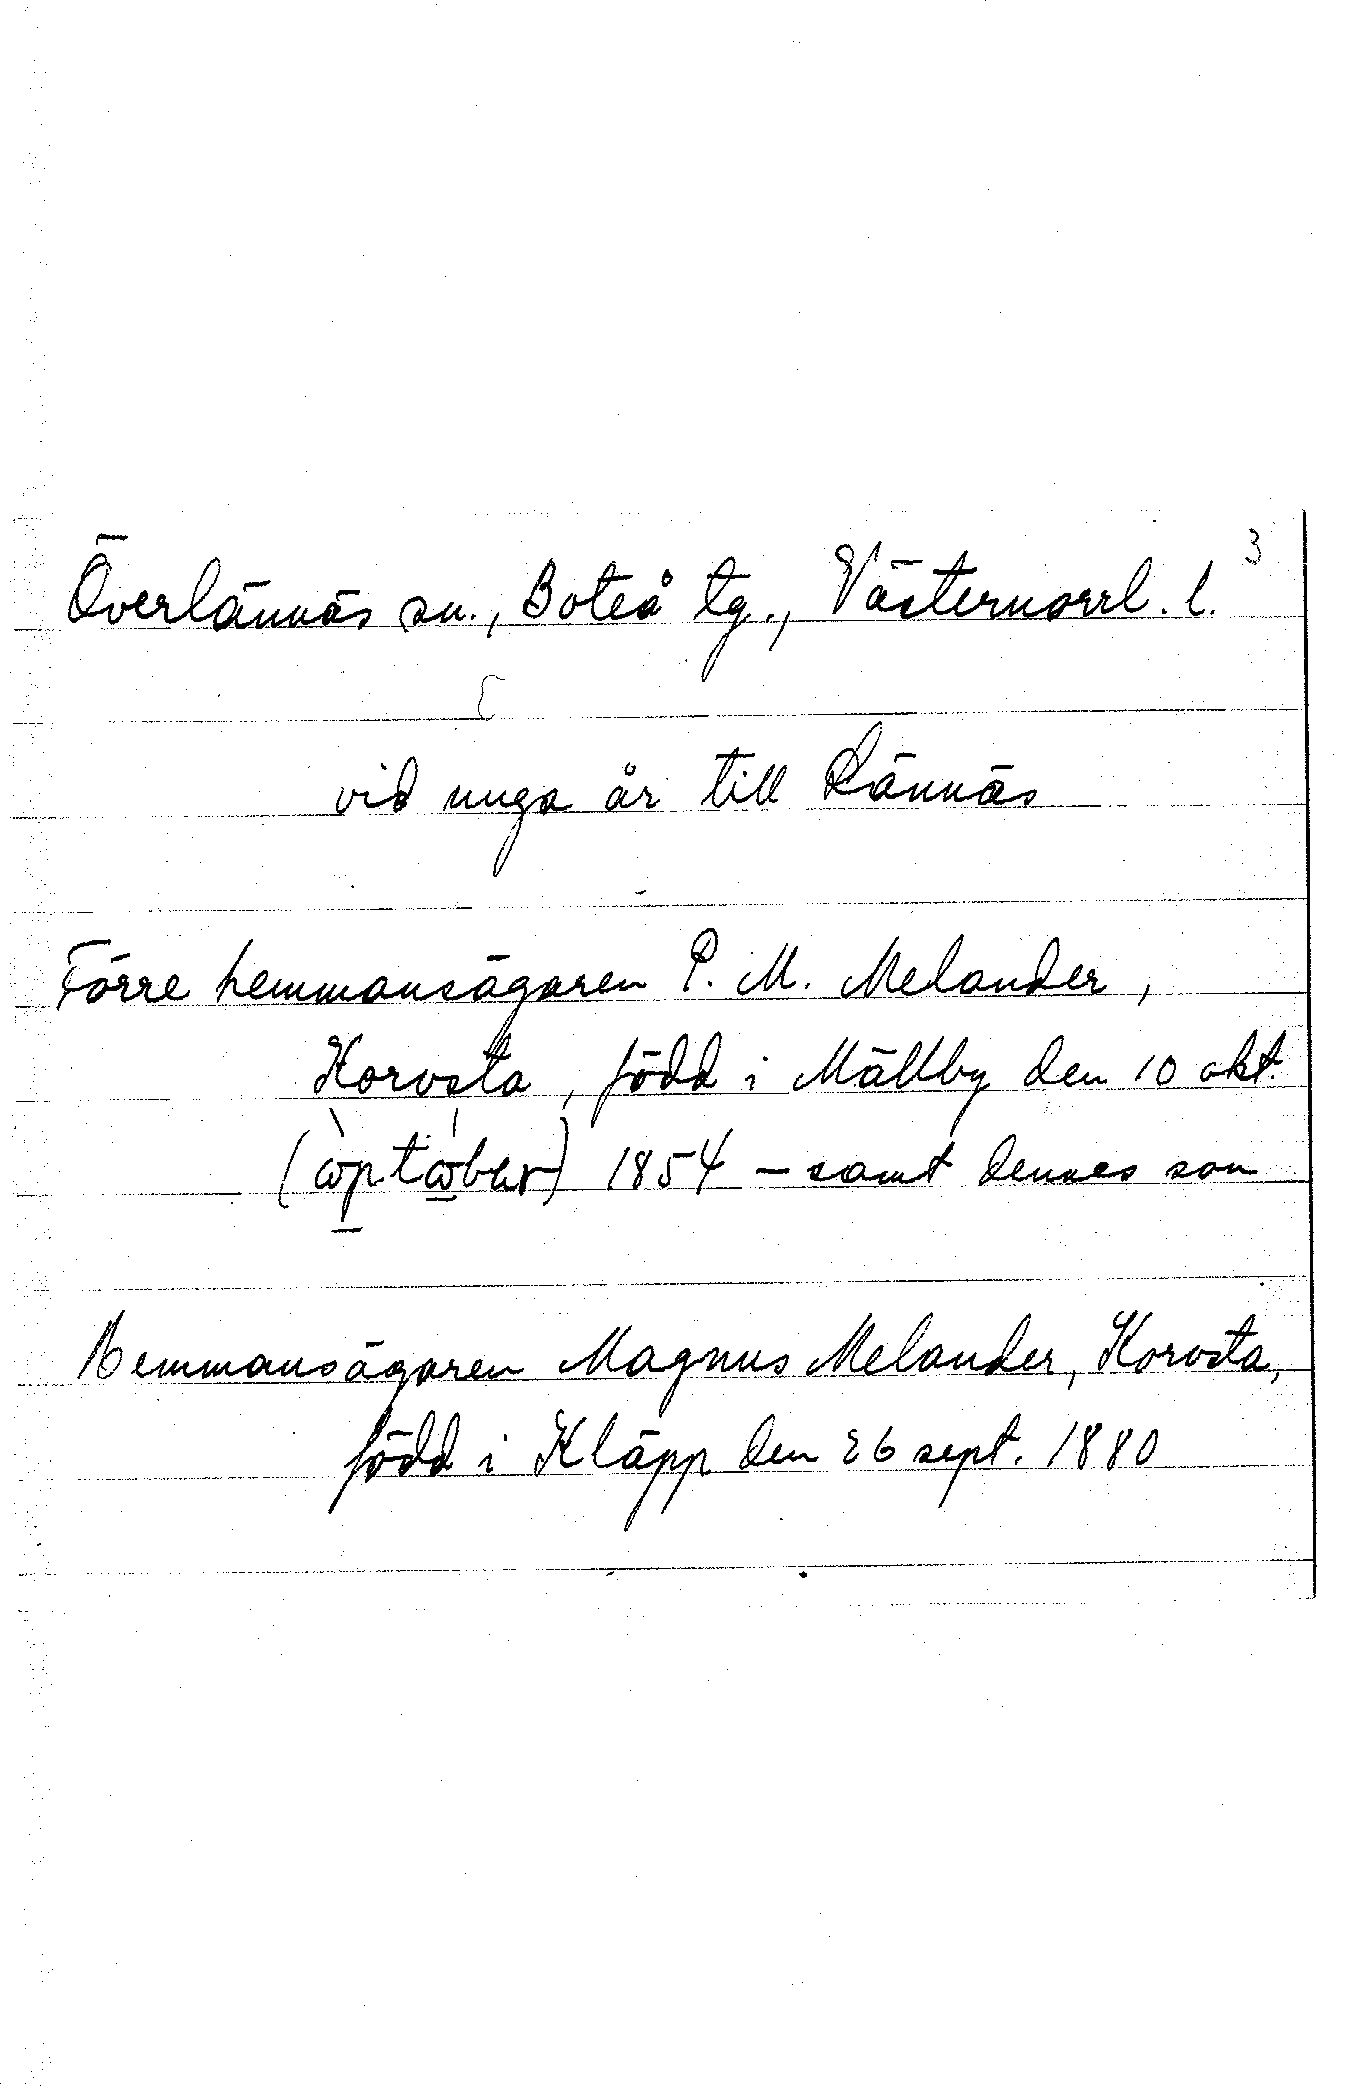 3
Överlännäs sn., Boteå tg., Västernorrl. l.
vid unga år till Lännäs
Förre hemmansägaren P. M. Melander,
Korvsta, född i Mällby den 10 okt.
1854 – samt dennes son
Hemmansägaren Magnus Melander, Korvsta,
född i Kläpp den 26 sept. 1880